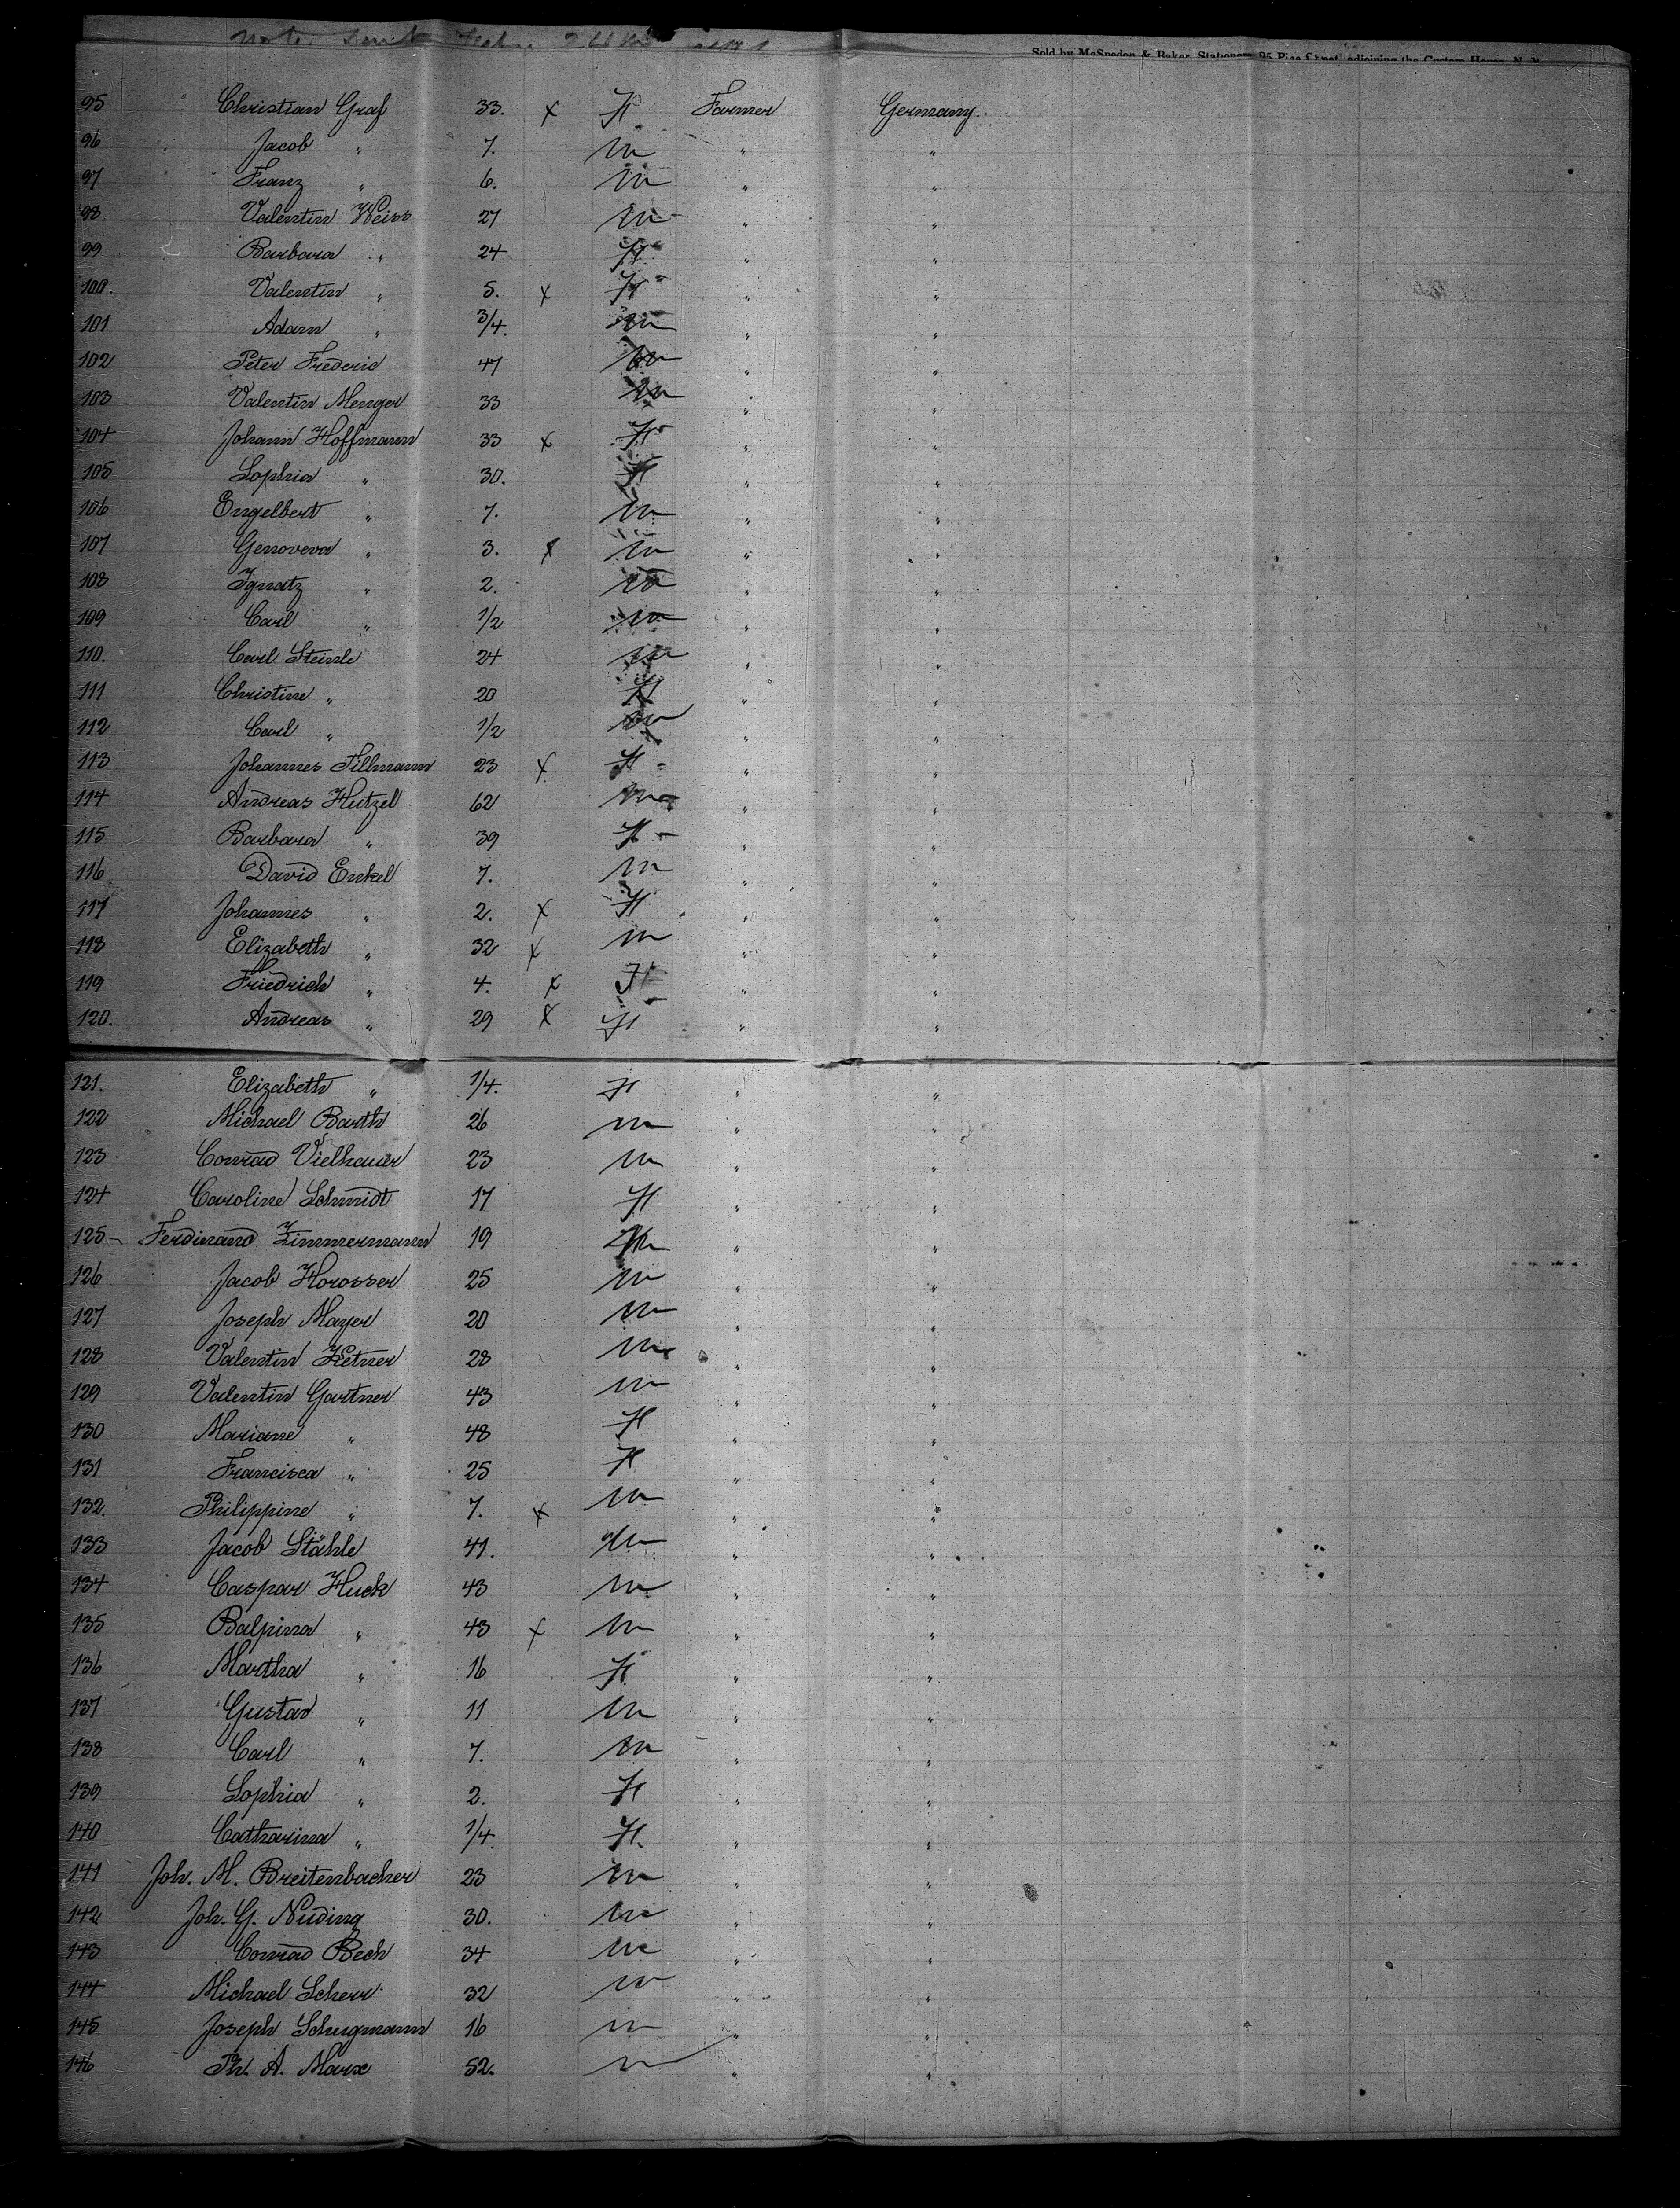 Note. Sent
Sold by McSpedon & Baker, Stationers, 25 Pine Street, adjoining the Custom House, N. Y.
95 Christian Graf 33. x F Farmer Germany.
96 Jacob " 7. M " "
97 Franz " 6. M " "
98 Valentin Weiss 27 M " "
99 Barbara " 24 F " "
100. Valentin " 5. x F " "
101 Adam " 3/4. M " "
102 Peter Frederic 47 M " "
103 Valentin Menger 33 M " "
104 Johann Hoffmann 33 x F " "
105 Sophia " 30. F " "
106 Engelbert " 7. M " "
107 Genoveva " 3. x M " "
108 Ignatz " 2. M " "
109 Carl " 1/2 M " "
110. Carl Steinle 24 M " "
111 Christine " 20 F " "
112 Carl " 1/2 M " "
113 Johannes Tillmann 23 x F " "
114 Andreas Hutzel 62 M " "
115 Barbara " 39 F " "
116 David Enkel 7. M " "
117 Johannes " 2. x F " "
118 Elizabeth " 32 x M " "
119 Friedrich " 4. x F " "
120. Andreas " 29 x F " "
121. Elizabeth " 1/4. F " "
122 Michael Barth 26 M " "
123 Conrad Vielhauer 23 M " "
124 Caroline Schmidt 17 F " "
125 Ferdinand Zimmermann 19 M " "
126 Jacob Horosser 25 M " "
127 Joseph Mayer 20 M " "
128 Valentin Hetner 28 M " "
129 Valentin Gartner 43 M " "
130 Mariane " 48 F " "
131 Francisca " 25 F " "
132. Philippine " 7. x M " "
133 Jacob Stähle 41. M " "
134 Caspar Huck 43 M " "
135 Balpina " 43 x M " "
136 Martha " 16 F " "
137 Gustav " 11 M " "
138 Carl " 7. M " "
139 Sophia " 2. F " "
140 Catharina " 1/4. F. " "
141 Joh. M. Breitenbacher 23 M " "
142 Joh. G. Nuding 30. M " "
143 Conrad Bech 34 M " "
144 Michael Scherr 32 M " "
145 Joseph Schugmann 16 M " "
146 Ph. A. Marx 52. M " "